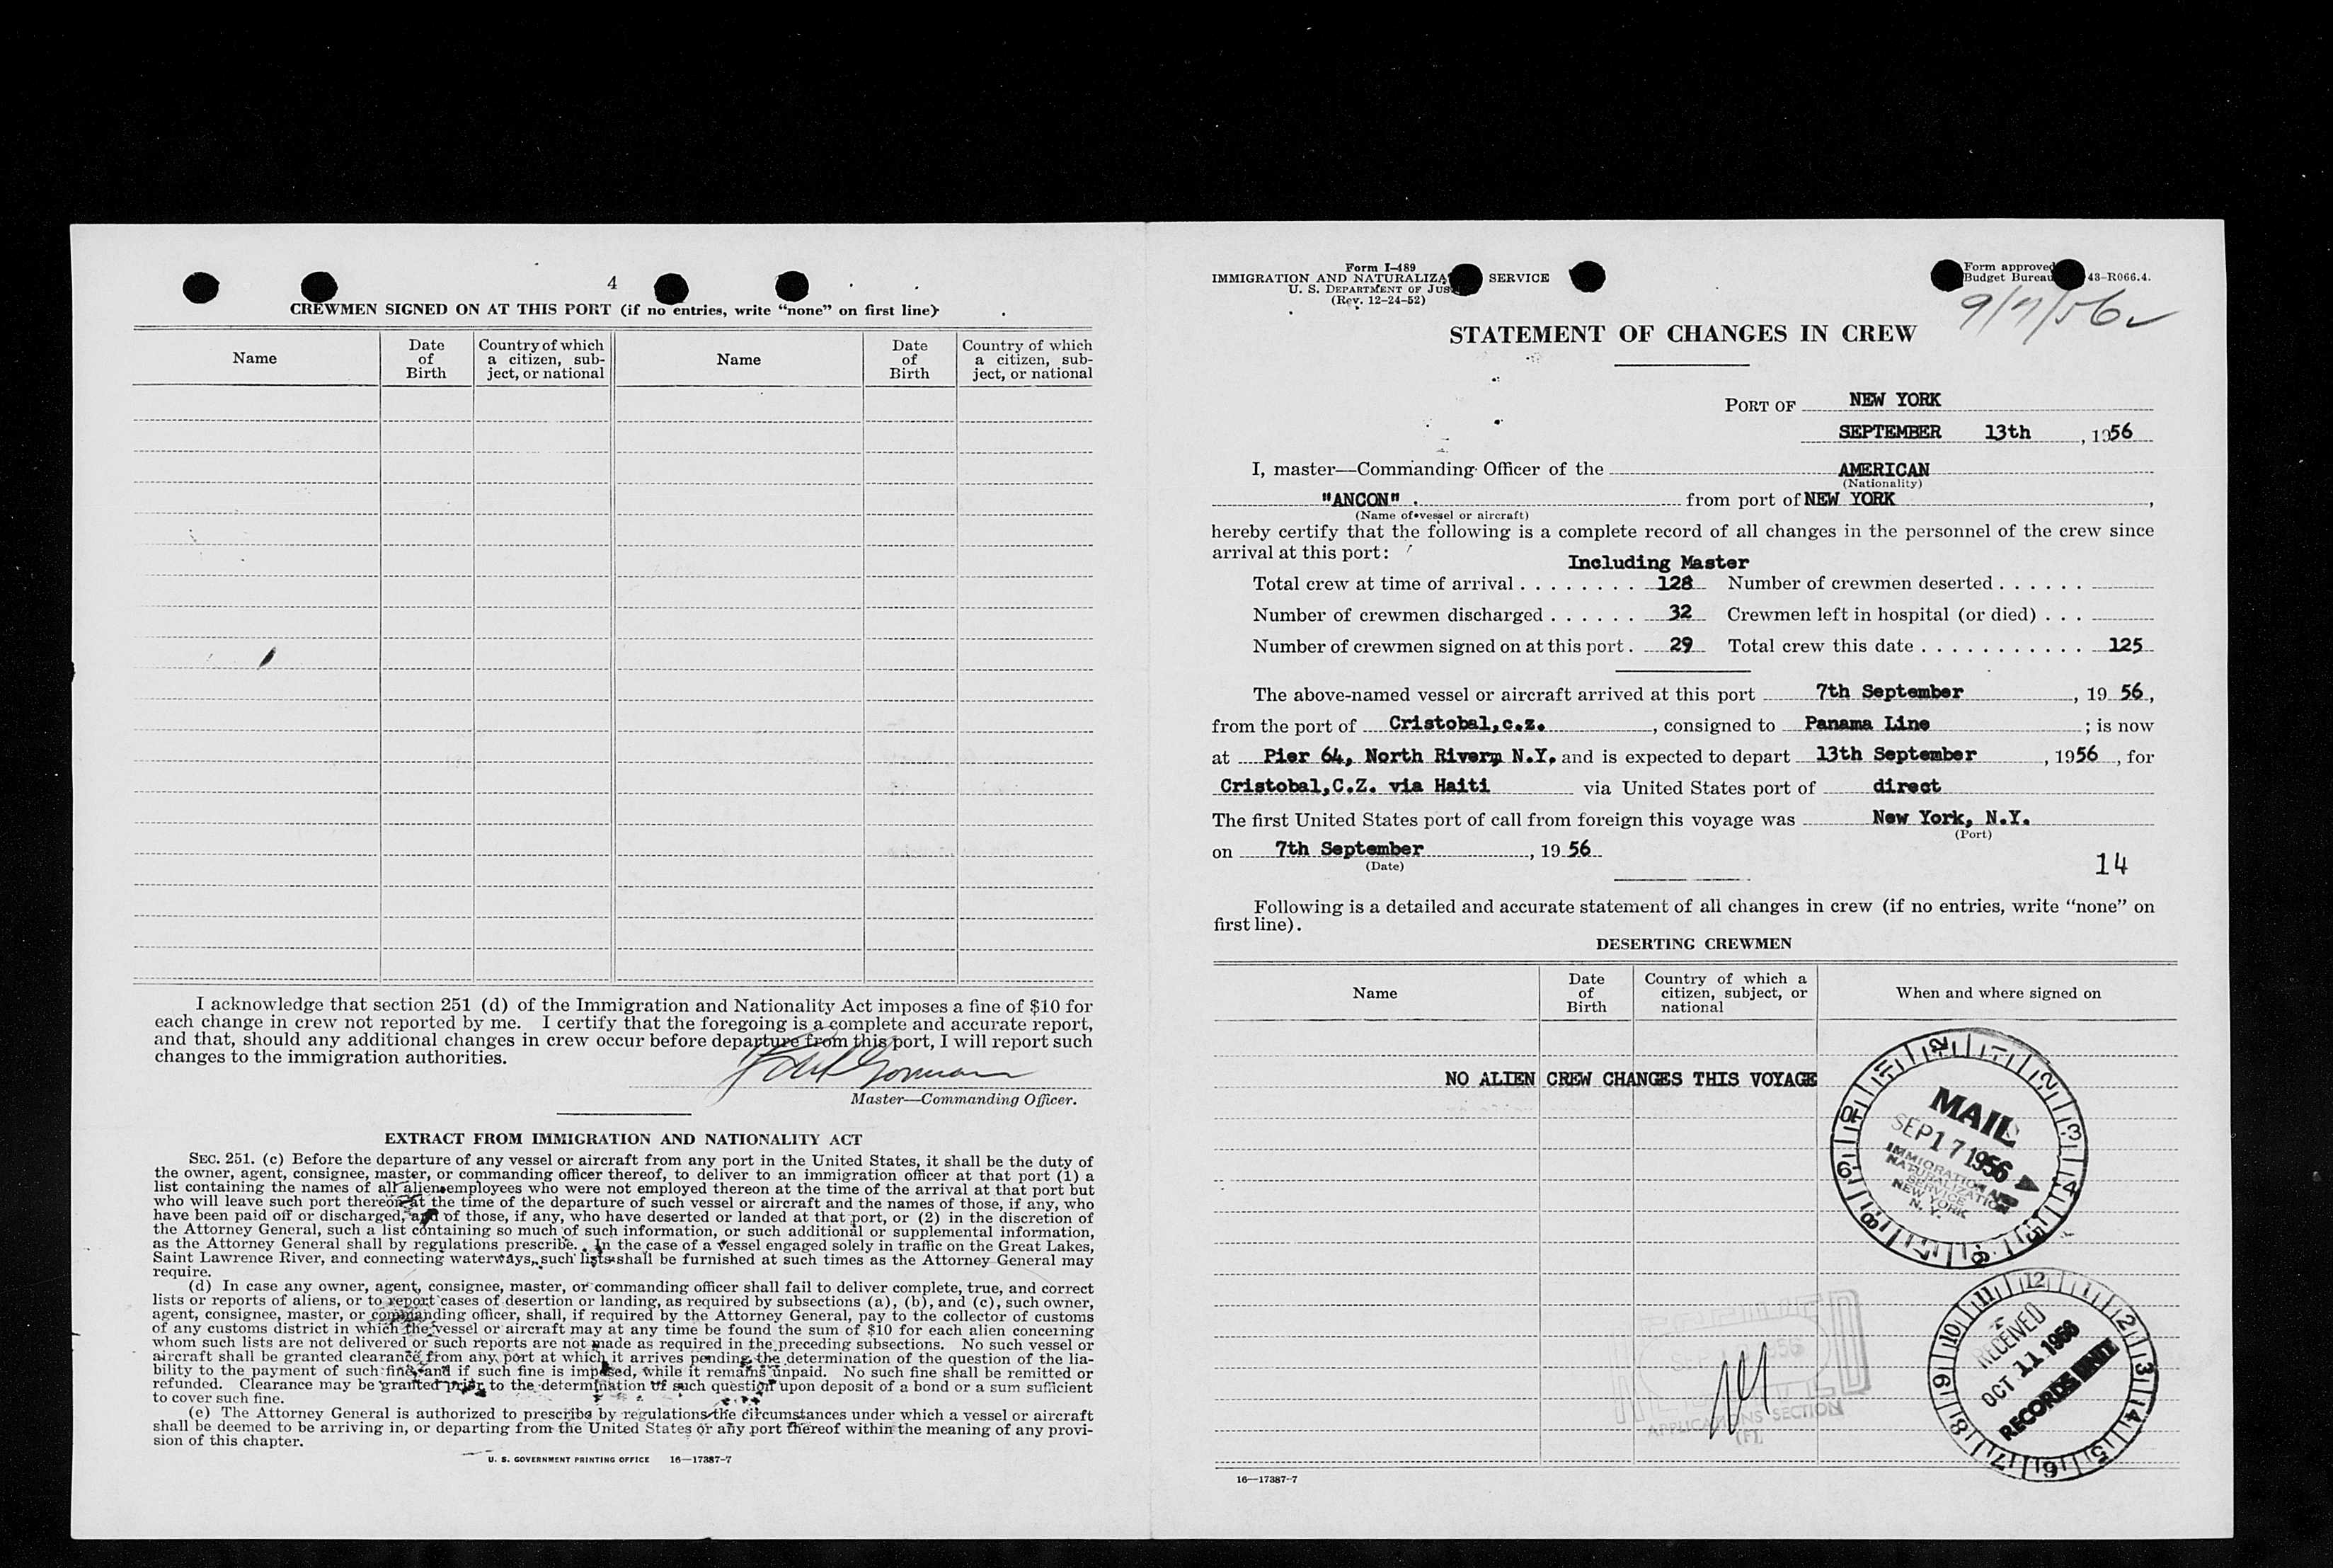 4
CREWMEN SIGNED ON AT THIS PORT (if no entries, write “none” on first line)
Name
Date of Birth
Country of which a citizen, subject, or national
Name
Date of Birth
Country of which a citizen, subject, or national
I acknowledge that section 251 (d) of the Immigration and Nationality Act imposes a fine of $10 for
each change in crew not reported by me. I certify that the foregoing is a complete and accurate report,
and that, should any additional changes in crew occur before departure from this port, I will report such
changes to the immigration authorities.
Master—Commanding Officer.
EXTRACT FROM IMMIGRATION AND NATIONALITY ACT
SEC. 251. (c) Before the departure of any vessel or aircraft from any port in the United States, it shall be the duty of
the owner, agent, consignee, master, or commanding officer thereof, to deliver to an immigration officer at that port (1) a
list containing the names of all alien employees who were not employed thereon at the time of the arrival at that port but
who will leave such port thereon at the time of the departure of such vessel or aircraft and the names of those, if any, who
have been paid off or discharged, and of those, if any, who have deserted or landed at that port, or (2) in the discretion of
the Attorney General, such a list containing so much of such information, or such additional or supplemental information,
as the Attorney General shall by regulations prescribe. In the case of a vessel engaged solely in traffic on the Great Lakes,
Saint Lawrence River, and connecting waterways, such lists shall be furnished at such times as the Attorney General may
require.
(d) In case any owner, agent, consignee, master, or commanding officer shall fail to deliver complete, true, and correct
lists or reports of aliens, or to report cases of desertion or landing, as required by subsections (a), (b), and (c), such owner,
agent, consignee, master, or commanding officer, shall, if required by the Attorney General, pay to the collector of customs
of any customs district in which the vessel or aircraft may at any time be found the sum of $10 for each alien concerning
whom such lists are not delivered or such reports are not made as required in the preceding subsections. No such vessel or
aircraft shall be granted clearance from any port at which it arrives pending the determination of the question of the lia-
bility to the payment of such fine, and if such fine is imposed, while it remains unpaid. No such fine shall be remitted or
refunded. Clearance may be granted prior to the determination of such question upon deposit of a bond or a sum sufficient
to cover such fine.
(e) The Attorney General is authorized to prescribe by regulations the circumstances under which a vessel or aircraft
shall be deemed to be arriving in, or departing from the United States or any port thereof within the meaning of any provi-
sion of this chapter.
U. S. GOVERNMENT PRINTING OFFICE 16—17387-7
Form I-489
IMMIGRATION AND NATURALIZA SERVICE
U. S. DEPARTMENT OF JUS
(Rev. 12-24-52)
Form approved
Budget Bureau 43-R066.4.
9/7/56
STATEMENT OF CHANGES IN CREW
PORT OF NEW YORK
SEPTEMBER 13th , 1956
I, master—Commanding Officer of the AMERICAN
(Nationality)
"ANCON" . from port of NEW YORK ,
(Name of vessel or aircraft)
hereby certify that the following is a complete record of all changes in the personnel of the crew since
arrival at this port:
Including Master
Total crew at time of arrival . . . . . . . . 128 Number of crewmen deserted . . . . . .
Number of crewmen discharged . . . . . . 32 Crewmen left in hospital (or died) . . .
Number of crewmen signed on at this port . 29 Total crew this date . . . . . . . . . . . 125
The above-named vessel or aircraft arrived at this port 7th September , 19 56 ,
from the port of Cristobal,c.z. , consigned to Panama Line ; is now
at Pier 64, North Riverm N.Y. and is expected to depart 13th September , 1956 , for
Cristobal,C.Z. via Haiti via United States port of direct
The first United States port of call from foreign this voyage was New York, N.Y.
(Port)
on 7th September , 19 56
(Date)
14
Following is a detailed and accurate statement of all changes in crew (if no entries, write “none” on
first line).
DESERTING CREWMEN
Name
Date of Birth
Country of which a citizen, subject, or national
When and where signed on
NO ALIEN CREW CHANGES THIS VOYAGE
MAIL
SEP 17 1956
IMMIGRATION AND
NATURALIZATION
SERVICE
NEW YORK
N. Y.
RECEIVED
OCT 11 1956
RECORDS UNIT
APPLICATIONS SECTION
16—17387-7